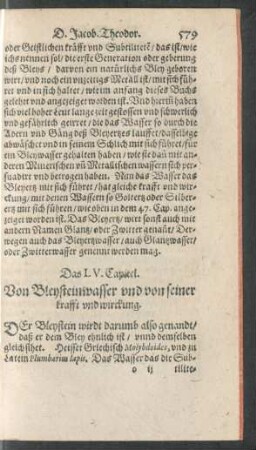 D. Jacob. Theodor. 579
oder Geistlichen kräfft vnd Subtilitetē / das ist / wie
ichs nennen sol / die erste Generation oder geberung
deß Bleys / darvon ein natürlichs Bley geboren
wirt / vnd noch ein vnzeitigs Metall ist / mit sich füh-
ret vnd in sich halter / wie im anfang dieses Buchs
gelehrt vnd angezeiget worden ist. Vnd hierin haben
sich viel hoher leut lange zeit gestossen vnd schwerlich
vnd gefährlich geirret / die das Wasser so durch die
Adern vnd Gäng deß Bleyertzes lauffet / dasselbige
abwäschet vnd in seinem Schlich mit sich führet / für
ein Bleywasser gehalten haben / wie sie dañ mit an-
deren Mineischen vñ Metalischen wassern sich per-
suadirt vnd betrogen haben. Nun das Wasser das
Bleyertz mit sich führet / hat gleiche krafft vnd wir-
ckung / mit denen Wassern so Goltertz oder Silber-
ertz mit sich führen / wie oben in dem 47. Cap. ange-
zeiget worden ist. Das Bleyertz / wirt sonst auch mit
andern Namen Glantz / oder Zwitter genañt / Der-
wegen auch das Bleyertzwasser / auch Glantzwasser /
oder Zwitterwasser genennt werden mag.
Das LV. Capitel.
Von Bleysteinwasser vnd von seiner
krafft vnd wirckung.
DEr Bleystein wirdt darumb also genandt /
daß er dem Bley ehnlich ist / vnnd demselben
gleich sihet. Heisset Griechisch Molybdoides, vnd zu
Latein Plumbarius lapis. Das Wasser das die Sub-
o ij tilite-